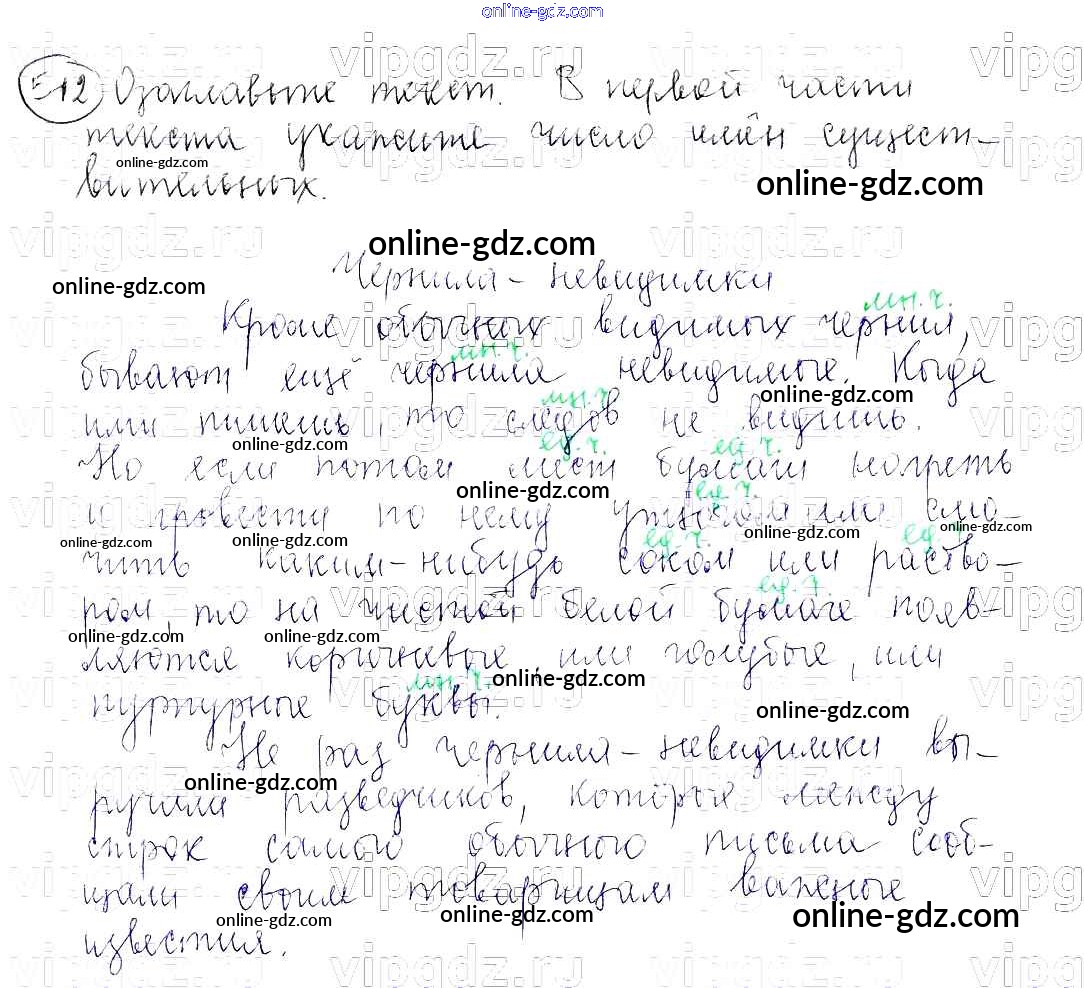 online-gdz.com
512 Озаглавьте текст. В первой части
текста укажите число имён сущест-
online-gdz.com
вительных.
online-gdz.com
vipgdz.ru
online-gdz.com
Чернила-невидимки
online-gdz.com
мн. ч.
Кроме обычных видимых чернил,
мн. ч.
бывают ещё чернила невидимые. Когда
online-gdz.com
мн. ч.
ими пишешь, то следов не видишь.
online-gdz.com
ед. ч. ед. ч.
Но если потом лист бумаги нагреть
online-gdz.com
ед. ч.
и провести по нему утюгом или смо-
online-gdz.com online-gdz.com online-gdz.com online-gdz.com
ед. ч. ед. ч.
чить каким-нибудь соком или раство-
ед. ч.
ром, то на чистой белой бумаге появ-
online-gdz.com online-gdz.com
ляются коричневые, или голубые, или
online-gdz.com
мн. ч.
пурпурные буквы.
online-gdz.com
Не раз чернила-невидимки вы-
online-gdz.com
ручали разведчиков, которые между
строк самого обычного письма сооб-
щали своим товарищам важные
online-gdz.com online-gdz.com online-gdz.com
известия.